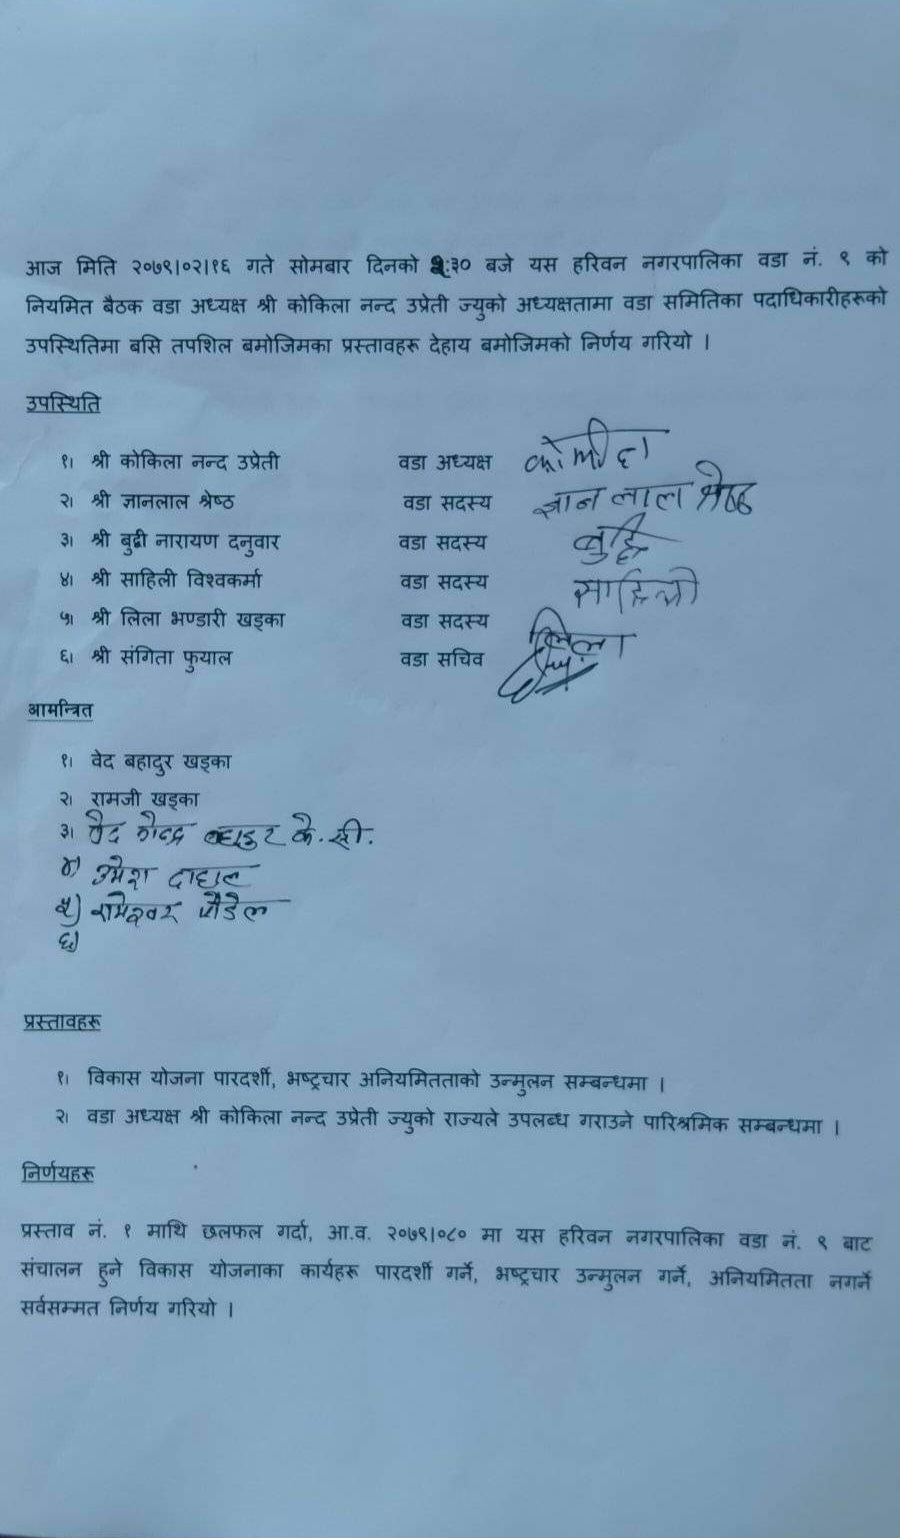 आज मिति २०७९।०२।१६ गते सोमबार दिनको :३० बजे यस हरिवन नगरपालिका वडा नं. ९ को
नियमित बैठक वडा अध्यक्ष श्री कोकिला नन्द उप्रेती ज्युको अध्यक्षतामा वडा समितिका पदाधिकारीहरूको
उपस्थितिमा बसि तपशिल बमोजिमका प्रस्तावहरू देहाय बमोजिमको निर्णय गरियो ।
उपस्थिति
१। श्री कोकिला नन्द उप्रेती वडा अध्यक्ष
२। श्री ज्ञानलाल श्रेष्ठ वडा सदस्य ज्ञान लाल श्रेष्ठ
३। श्री बुद्धी नारायण दनुवार वडा सदस्य बुद्धि
४। श्री साहिली विश्वकर्मा वडा सदस्य साहिली
५। श्री लिला भण्डारी खड्का वडा सदस्य लिला
६। श्री संगिता फुयाल वडा सचिव
आमन्त्रित
१। वेद बहादुर खड्का
२। रामजी खड्का
३। बहादुर के.सी.
४) उमेश दाहाल
५) रामेश्वर पौडेल
६)
प्रस्तावहरू
१। विकास योजना पारदर्शी, भष्ट्रचार अनियमितताको उन्मुलन सम्बन्धमा ।
२। वडा अध्यक्ष श्री कोकिला नन्द उप्रेती ज्युको राज्यले उपलब्ध गराउने पारिश्रमिक सम्बन्धमा ।
निर्णयहरू
प्रस्ताव नं. १ माथि छलफल गर्दा, आ.व. २०७९।०८० मा यस हरिवन नगरपालिका वडा नं. ९ बाट
संचालन हुने विकास योजनाका कार्यहरू पारदर्शी गर्ने, भष्ट्रचार उन्मुलन गर्ने, अनियमितता नगर्ने
सर्वसम्मत निर्णय गरियो ।